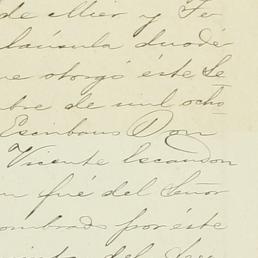 de Mier y Te
láusula duodé
ue otorgó éste Se
bre de mil ocho
Escribano Don
Vicente Escandon
n fué del Señor
ombrado por éste
del